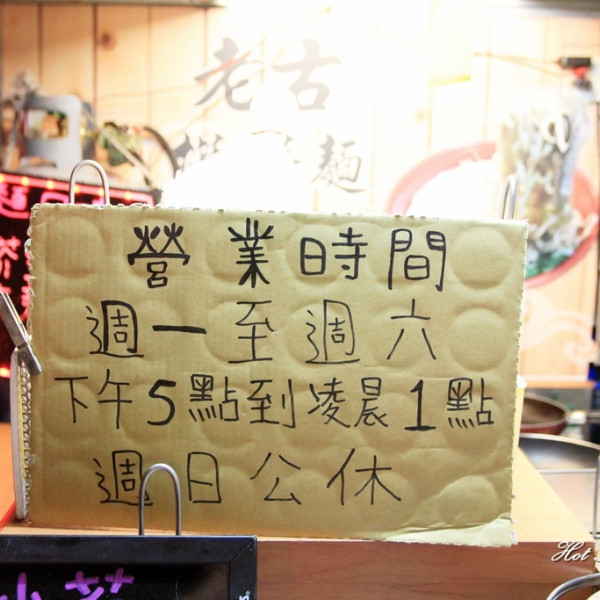 老古
麵
營業時間
週一至週六
下午5點到凌晨1點
週日公休
Hot